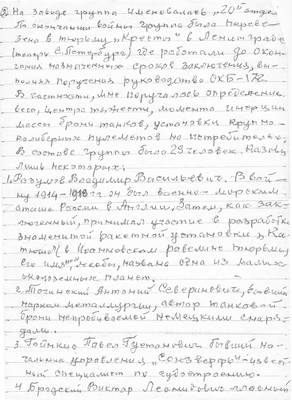 На заводе группа именовалась „20" отдел
По окончании войны группа была переве-
дена в тюрьму „Кресты" в Ленинграде
(теперь С. Петербург) где работали до окон-
чания назначенных сроков заключения, вы-
полняя поручения руководства ОКБ-172.
В частности, мне поручалось определение
веса, центра тяжести, момента инерции
массы брони танков, установки крупно-
калиберных пулеметов на истребителях.
В составе группы было 29 человек. Назову
лишь некоторых:
1. Разумов Владимир Васильевич. В вой-
ну 1914-1918 г.г. он был военно-морским
атташе России в Англии, Затем, как зак-
люченный, принимал участие в разработке
знаменитой ракетной установки „Ка-
тюша" (в Иоанновском равелине тюрьмы)
его именем, якобы, названа одна из малых
планет.
2. Точинский Антоний Северинович, бывший
нарком металлургии, автор танковой
брони непробиваемой немецкими снаря-
дами.
3. Гойнкис Павел Густавович бывший на-
чальник управления „Союзверфь" извест-
ный специалист по судостроению.
4. Бродский Виктор Леонидович главный